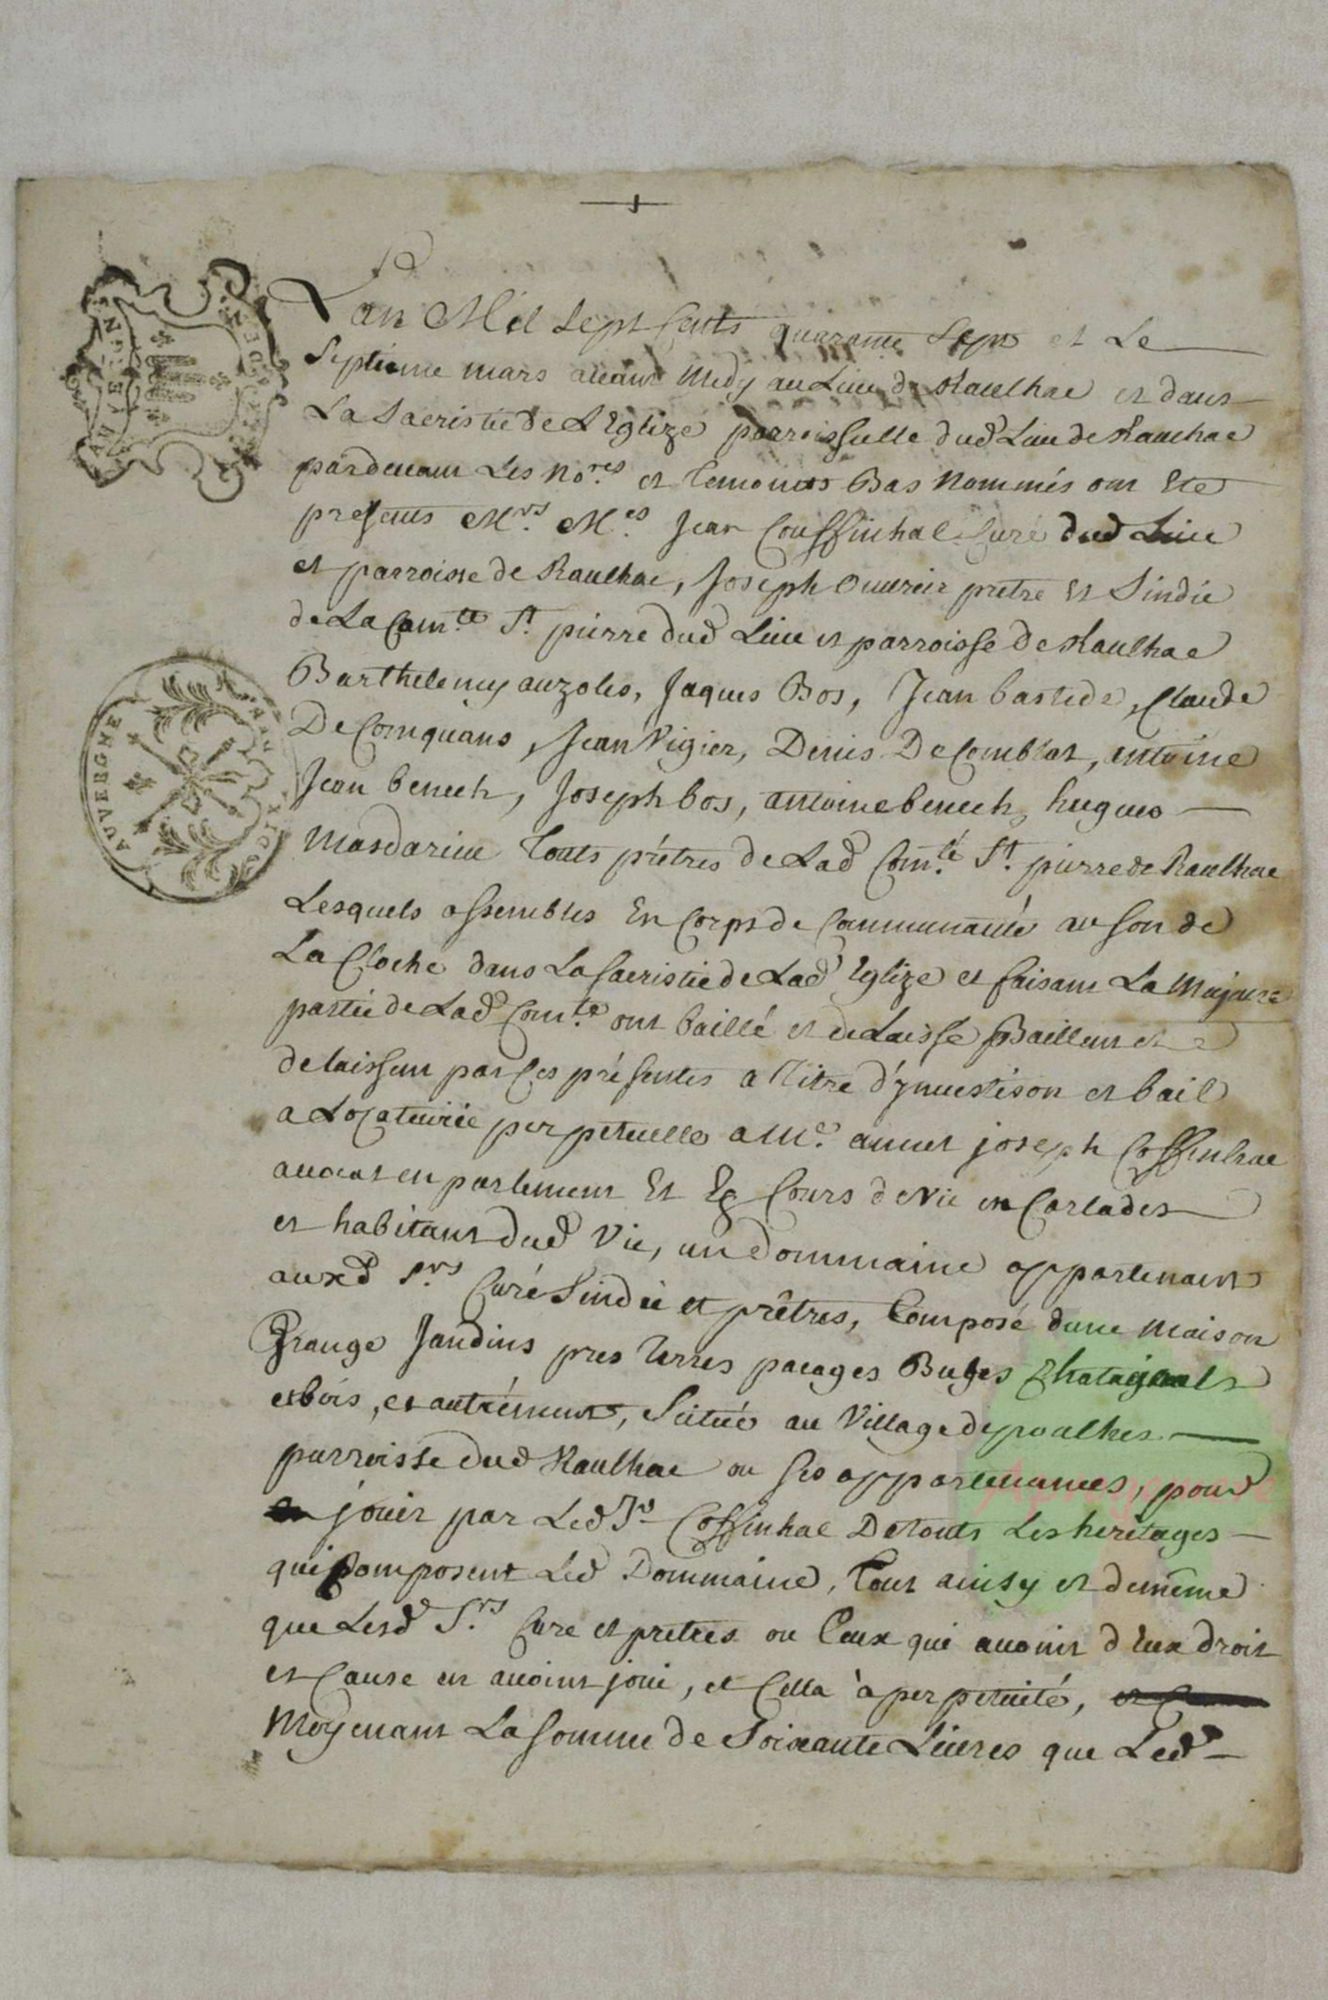 Lan Mil Sept Cents quarante Sept et Le
Septieme mars avant Midy au Lieu de Raulhac et dans
La Sacristie de L'Eglize parroissielle dud Lieu de Raulhac
pardevant Les No.res et temoins Bas Nommés ont Eté
presents M.rs M.es Jean Couffinhal Curé dud Lieu
et parroisse de Raulhac, Joseph prêtre Et Sindic
de La Com.té St. pierre dud Lieu et parroisse de Raulhac
Barthelemy auzoles, Jaques Bos, Jean bastide, Claude
De Comquans, Jean Vigier, Denis De Comblat, antoine
Jean benech, Joseph bos, antoine benech, hugues
Masdarius touts prêtres de Lad Com.té St. pierre de Raulhac
Lesquels assembles En Corps de Communauté au son de
La Cloche dans La Sacristie de Lad Eglize et faisant La Majeure
partie de Lad Com.té ont baillé et delaissé Baillent et
delaissent par Ces présentes a Titre d'ynvestison et bail
a Locaterie perpetuelle a M.e annet joseph Coffinhac
avocat en parlement Et Cours de Vic en Carlades
et habitant dud Vic, un dommaine appartenant
auxd S.rs Curé Sindic et prêtres, Composé dune Maison
Grange Jardins pres terres pacages Buges
et bois, et autrément, Scitué au Village de
parroisse dud Raulhac ou ses appartenances, pour
jouir par Led S.r Coffinhal De touts Les heritages
qui Composent Led Dommaine, tout ainsy et de même
que Lesd S.rs Cure et pretres ou Ceux qui avoint d Eux droit
et Cause en avoint joui, et Cella à perpetuité,
Moyenant La somme de Soixante Livres que Led
AUVERGNE